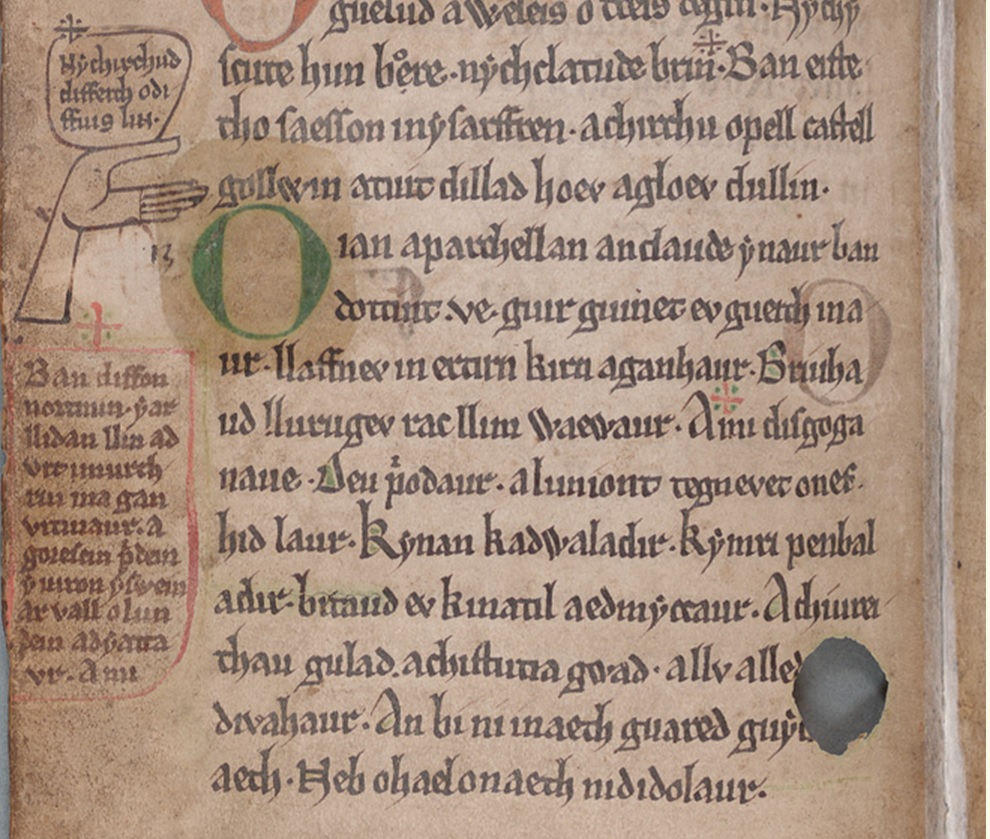 guelud aweleis o tteis tegin. Nychy
scute hun bore. nychclatude brin. Ban eiste
tho saesson inysarffren. achirchu opell castell
gollwin atuit dillad hoev agloev dullin.
Oian aparchellan anclaude ynaur ban
dottint. ve. guir guinet ev gueith ma
ur. llaffnev in ertirn kirn aganhaur. Briuha
ud llurugev rac llim waewaur. A mi disgoga
naue. Deu priodaur. a luniont tegnevet o nef.
hid laur. Kynan kadwaladir. Kymri penbal
adir. bitaud ev kinatil aedmyccaur. A chiurei
thau gulad. achistutia goad. a llv a lle
divahaur. An bi ni inaeth guared guy
aeth. Neb ohaelonaeth nididolaur.
Nychirchud
differth odi
ffuis lin.
13
Ban diffon
nortmin. y ar
llidan llin ad
vit imurth
rin ma gan
vitinaur. a
goresein pdein
y uiron yswein
ar vall o lun
dein adyatta
vr. A mi